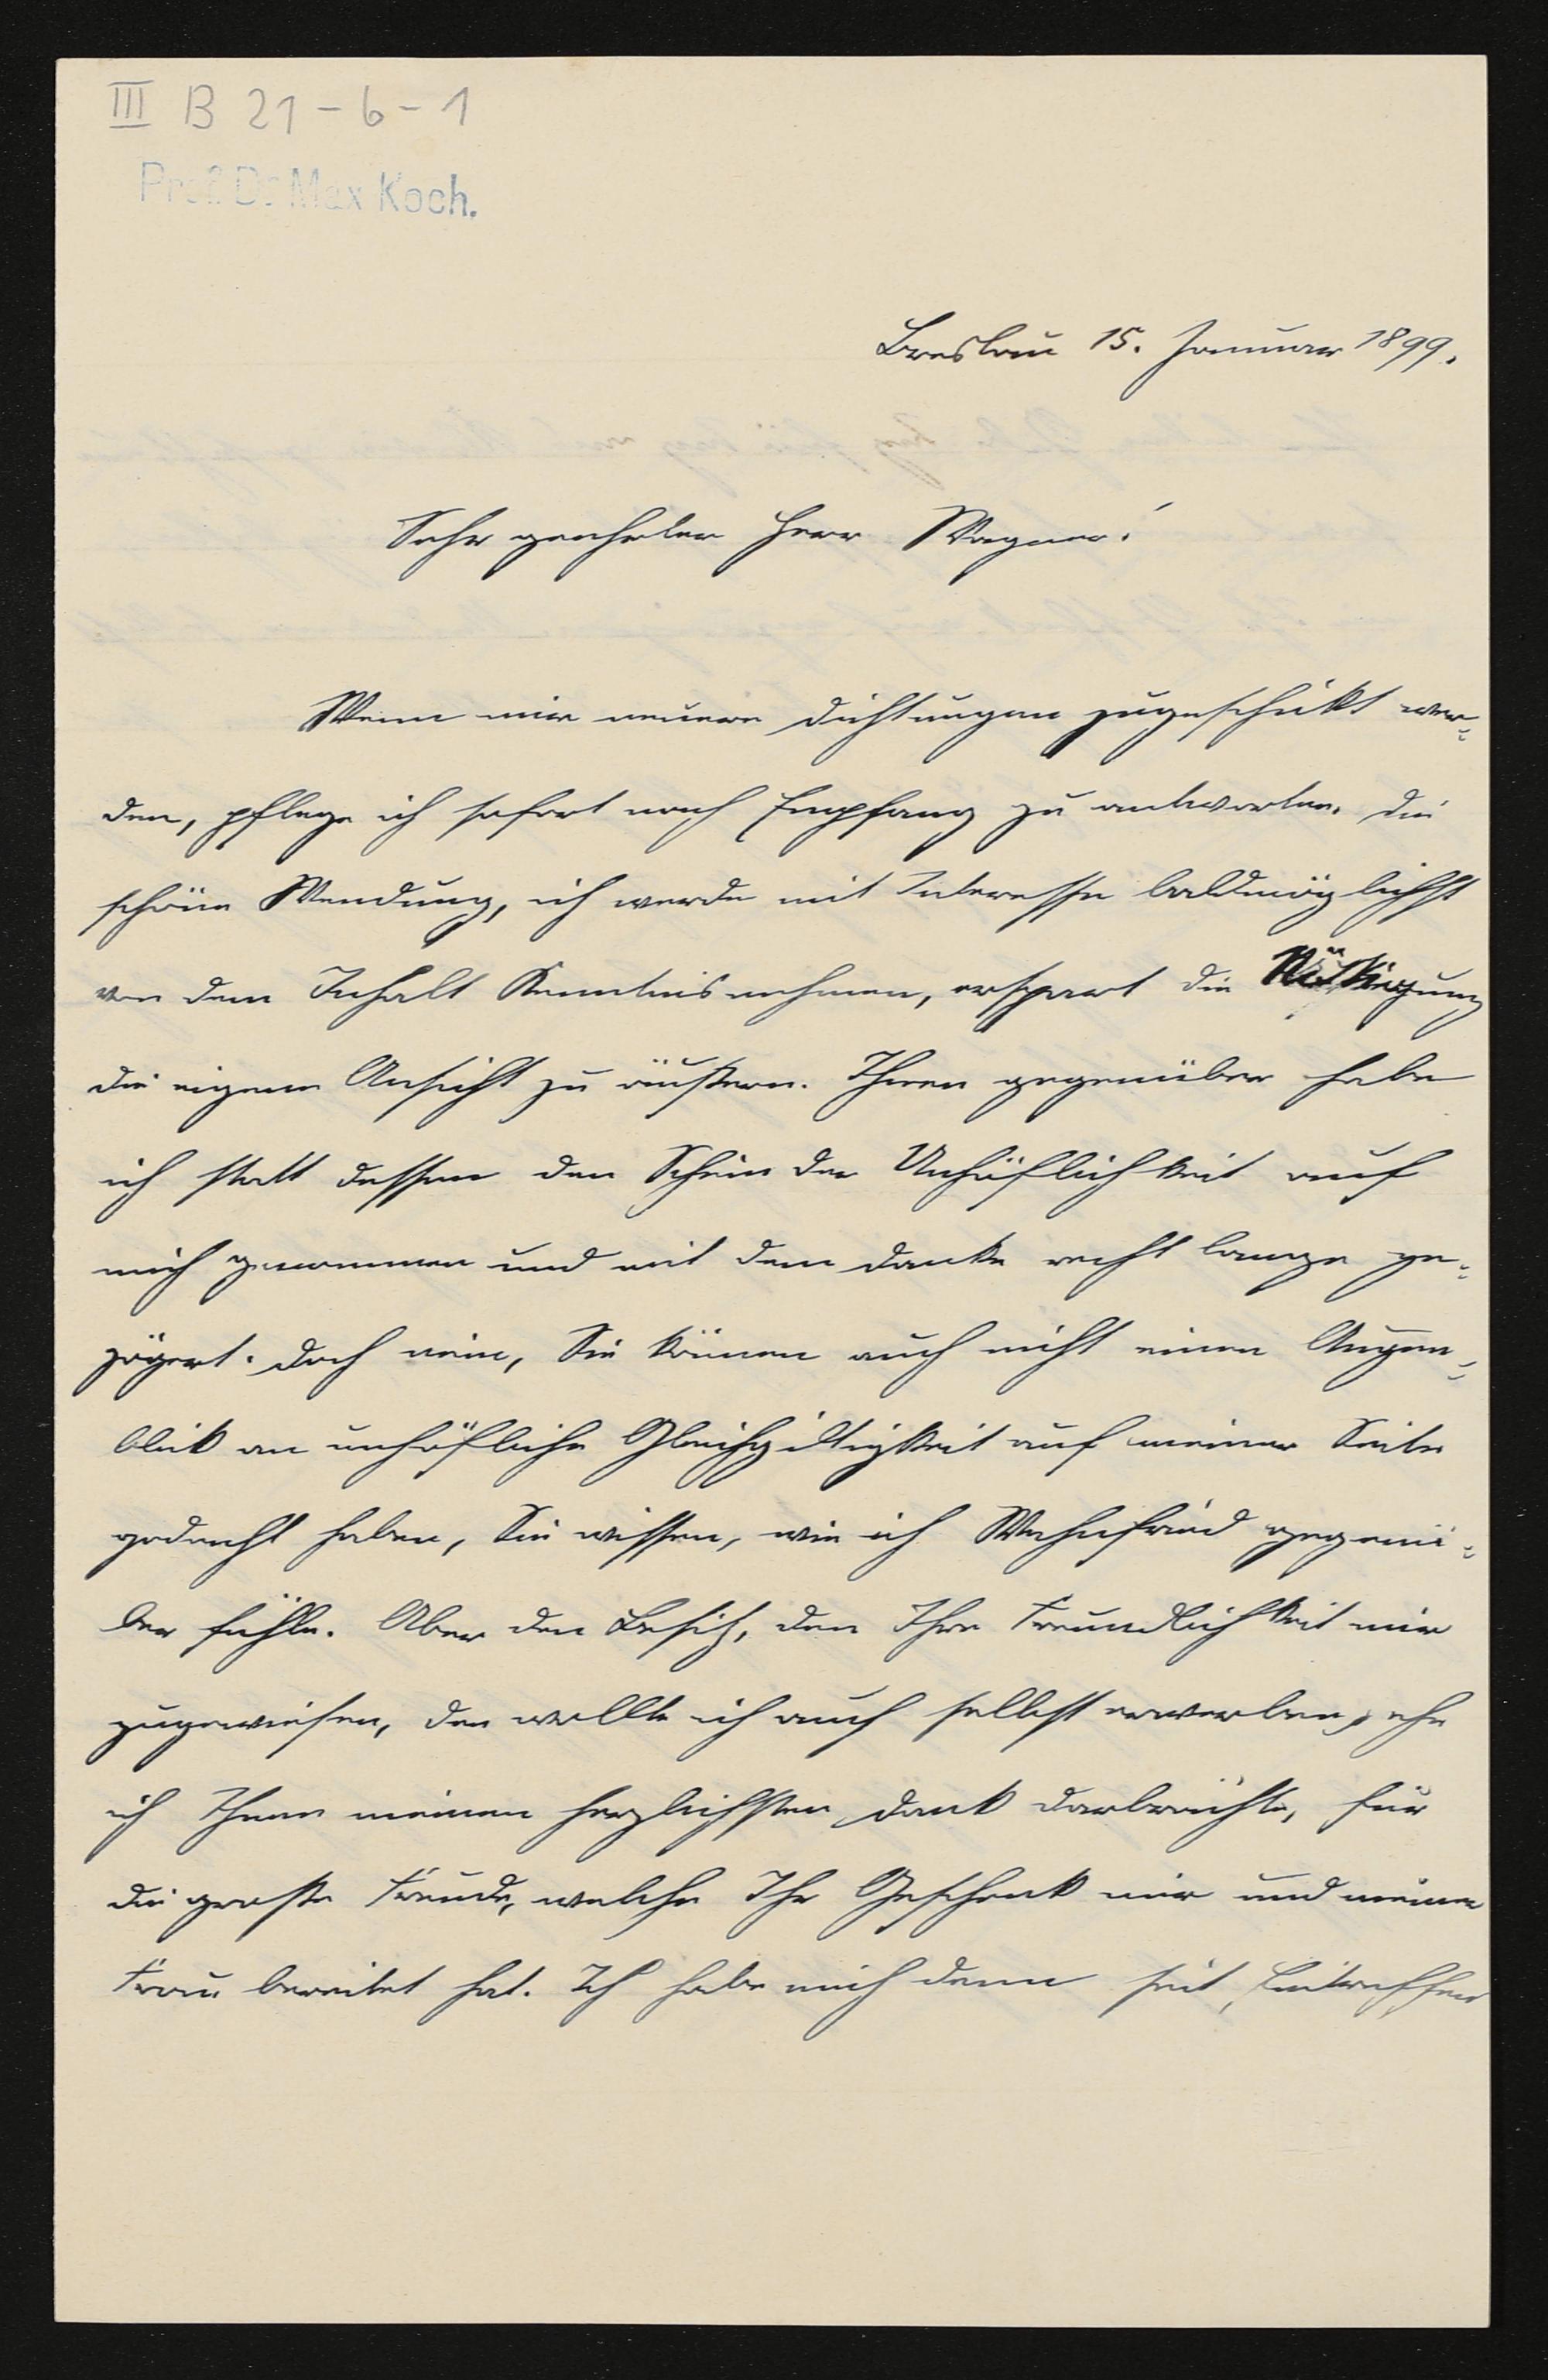 III B 21-6-1
Prof. Dr Max Koch.
Breslau 15. Januar 1899.
Sehr geehrter Herr Wagner!
Wenn mir neuere Dichtungen zugeschickt wer-
den, pflege ich sofort nach Empfang zu antworten. Die
schöne Wendung, ich werde mit Interesse baldmöglichst
von dem Inhalt Kenntnis nehmen, erspart die Nötigung
die eigene Ansicht zu äußern. Ihnen gegenüber habe
ich statt dessen den Schein der Unhöflichkeit auf
mich genommen und mit dem Danke recht lange ge-
zögert. Doch nein, Sie können auch nicht einen Augen-
blick an unhöfliche Gleichgiltigkeit auf meiner Seite
gedacht haben, Sie wissen, wie ich Wahnfried gegenü-
ber fühle. Aber den Besitz, den Ihre Freundlichkeit mir
zugewiesen, den wollte ich auch selbst erwerben, ehe
ich Ihnen meinen herzlichsten Dank darbrächte, für
die große Freude, welche Ihr Geschenk mir und meiner
Frau bereitet hat. Ich habe mich denn seit Eintreffen